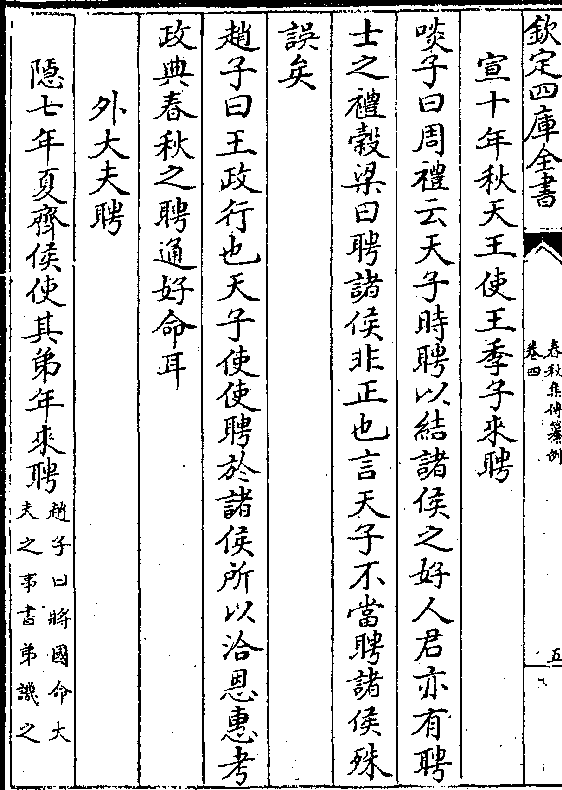 欽定四庫全書
春秋集傳纂例
卷四
五
宣十年秋天王使王季子來聘
啖子曰周禮云天子時聘以結諸侯之好人君亦有聘
士之禮榖梁曰聘諸侯非正也言天子不當聘諸侯殊
誤矣
趙子曰王政行也天子使使聘於諸侯所以洽恩惠考
政典春秋之聘通好命耳
外大夫聘
隱七年夏齊侯使其弟年來聘
趙子曰將國命大
夫之事書弟譏之